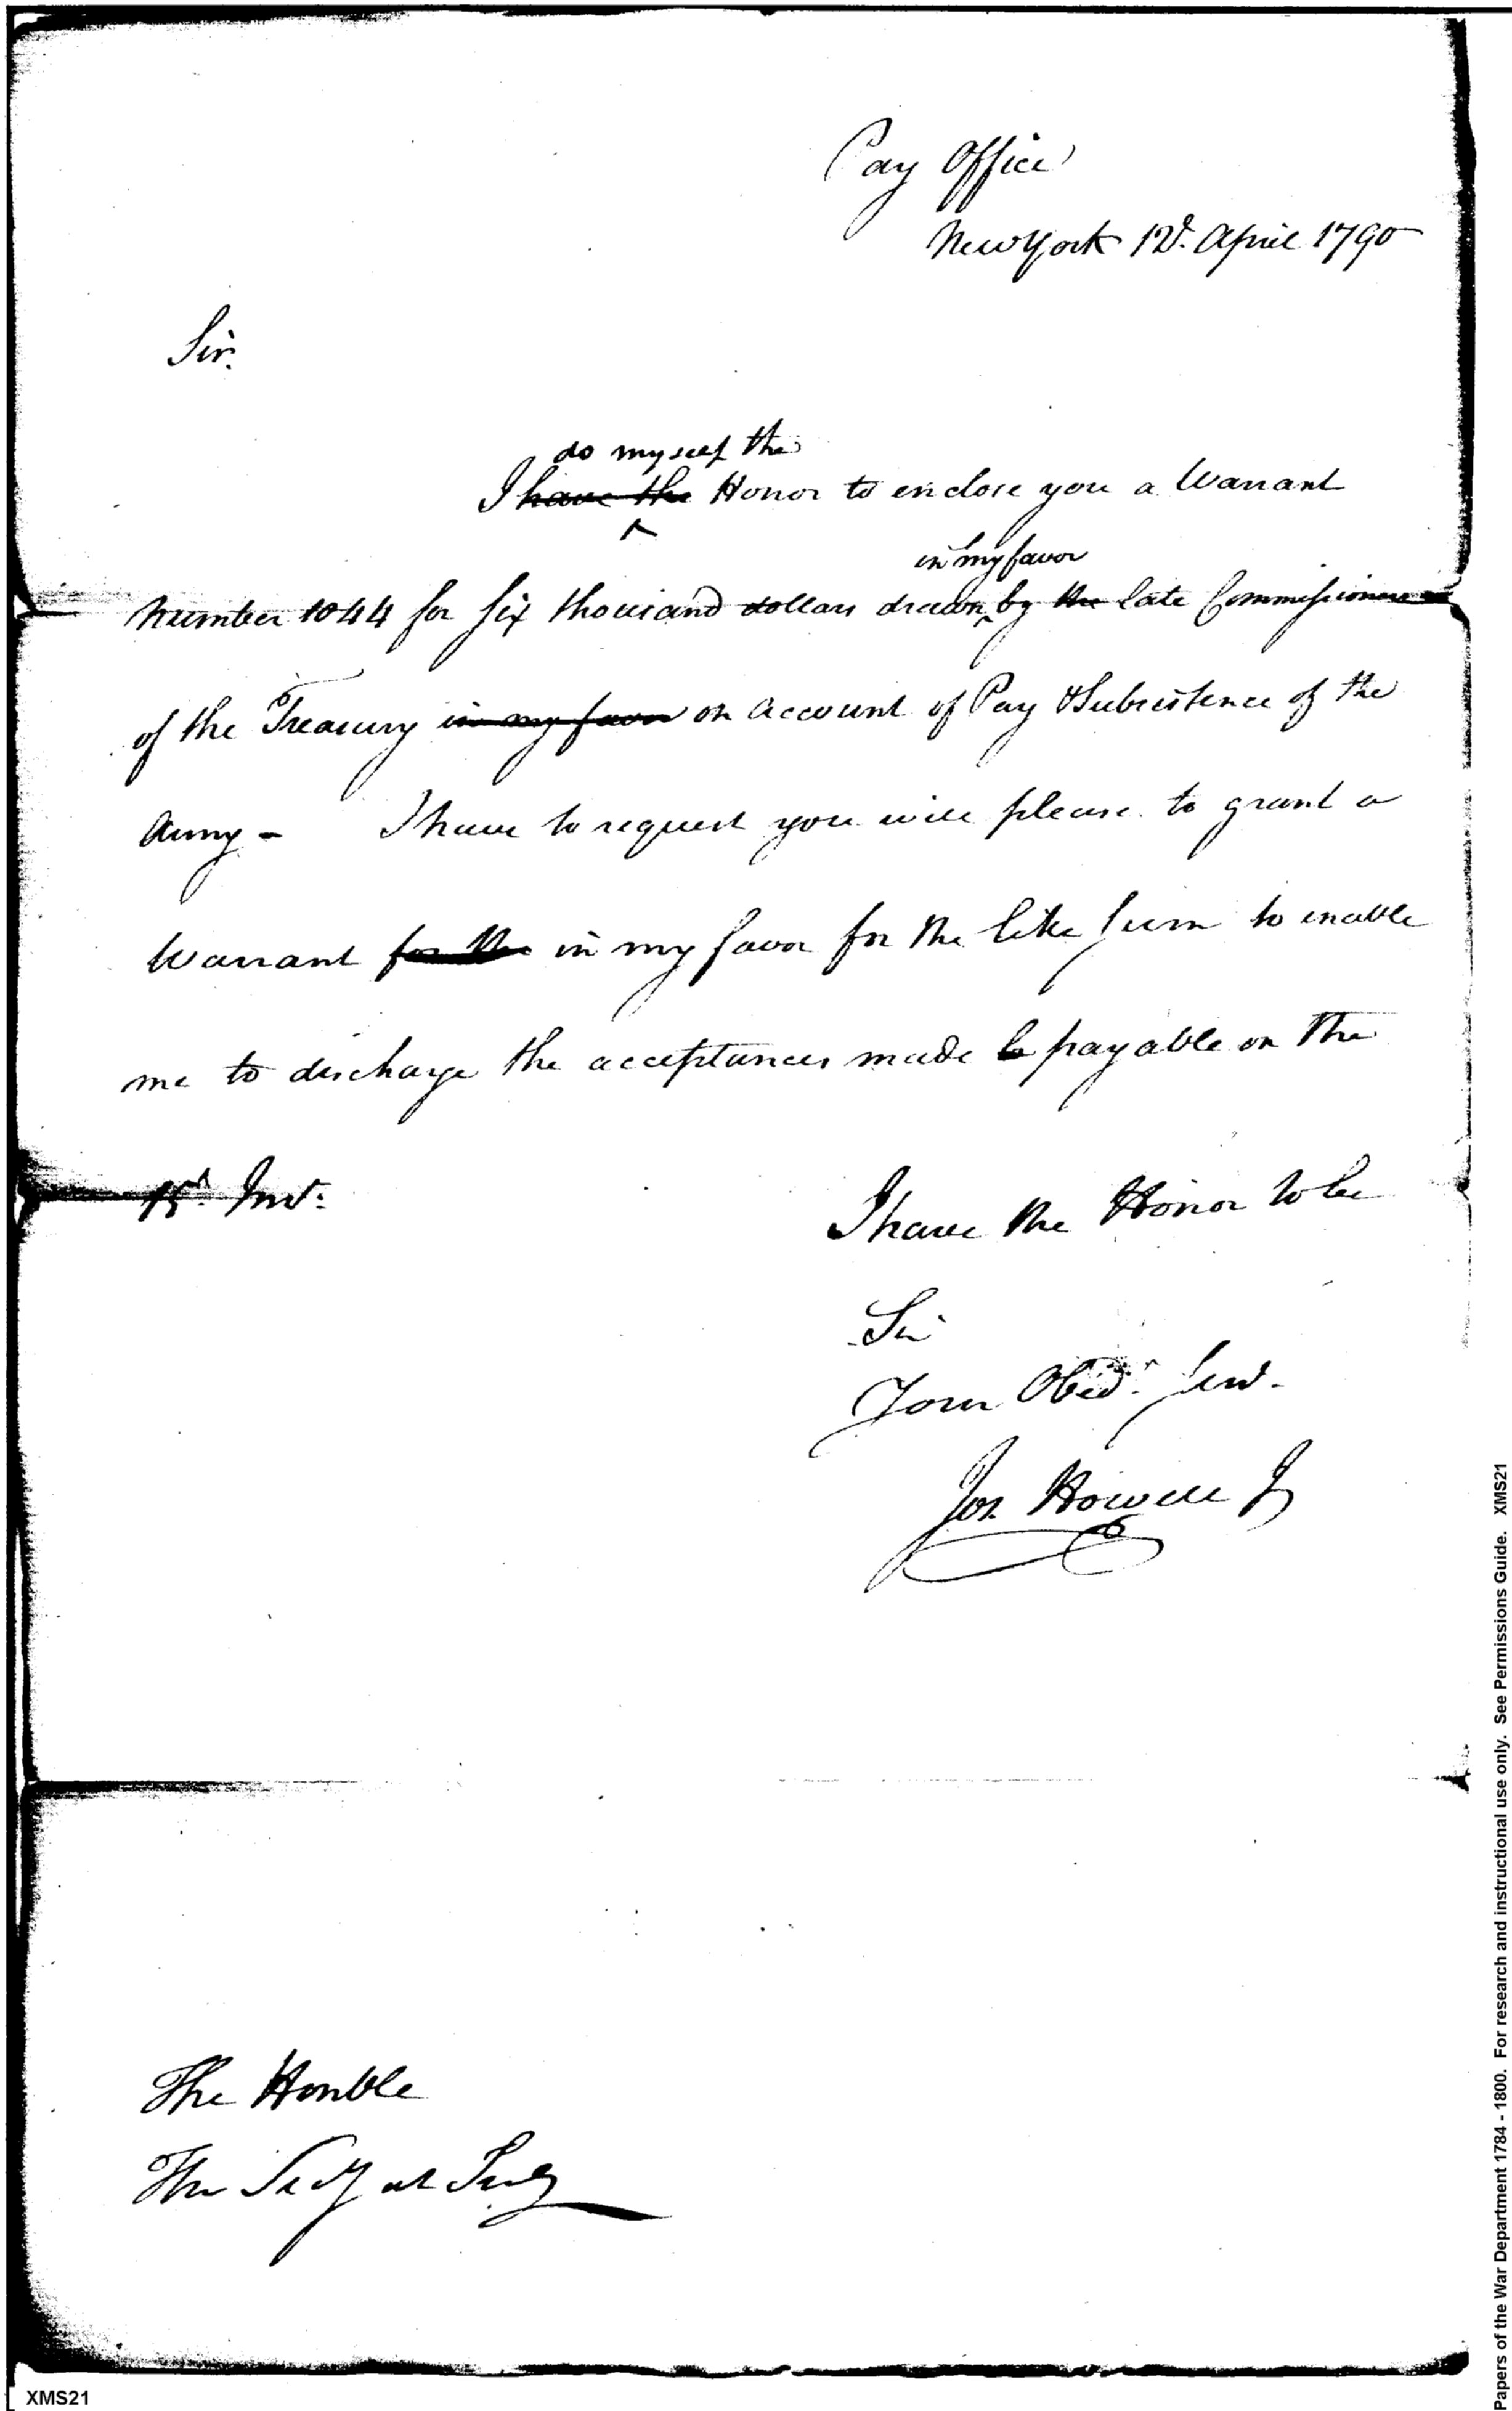 Pay Office
New York 12th. April 1790
Sir.
do myself the
I have the Honor to enclose you a Warrant
in my favor
Number 1044 for Six thousand dollars drawn by the late Commissioners
of the Treasury in my favor on account of Pay & Subsistence of the
Army - I have to request you will please to grant a
Warrant for the in my favor for the like Sum to enable
me to discharge the acceptances made payable on the
15th Inst.
I have the Honor to be
Sir
Your Obedt. Servt.
Jos. Howell Jr
The Honble
The Secy at Treay
XMS21
Papers of the War Department 1784 - 1800. For research and instructional use only. See Permissions Guide. XMS21